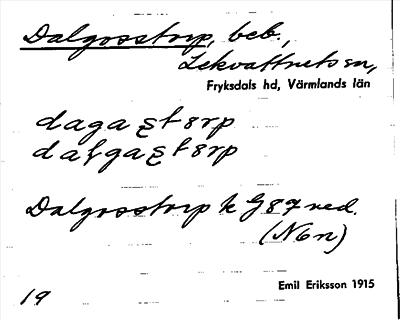 Dalgrosstorp, beb.,
Lekvattnets sn,
Fryksdals hd, Värmlands län
dagaʂtɵrp
daɽgaʂtɵrp
Dalgrosstorp k G 87 ned.
(N6n)
Emil Eriksson 1915
19